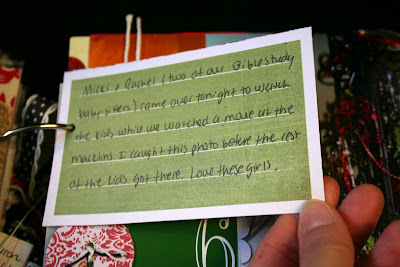 Micki & Rachel (two of our Bible study
baby sitters) came over tonight to watch
the kids while we watched a movie at the
macklins. I caught this photo before the rest
of the kids got there. Love these girls.
6